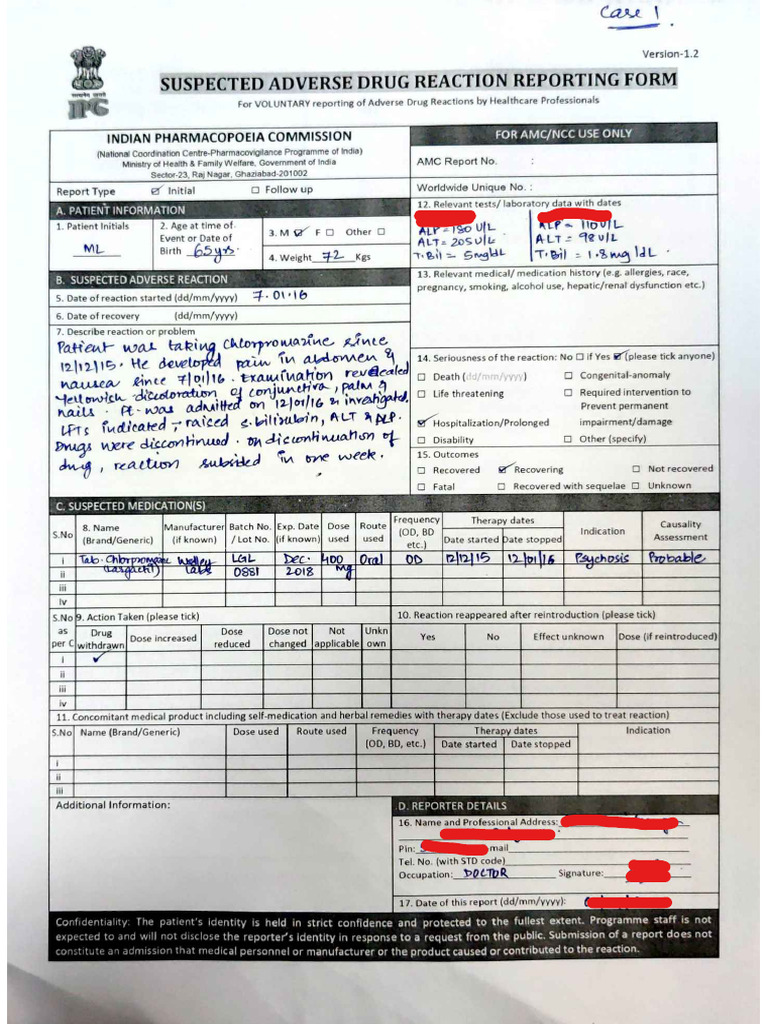 Case 1.
Version-1.2
SUSPECTED ADVERSE DRUG REACTION REPORTING FORM
IPC
For VOLUNTARY reporting of Adverse Drug Reactions by Healthcare Professionals
INDIAN PHARMACOPOEIA COMMISSION
(National Coordination Centre-Pharmacovigilance Programme of India)
Ministry of Health & Family Welfare, Government of India
Sector-23, Raj Nagar, Ghaziabad-201002
Report Type ☑ Initial ☐ Follow up
FOR AMC/NCC USE ONLY
AMC Report No. :
Worldwide Unique No. :
A. PATIENT INFORMATION
1. Patient Initials
ML
2. Age at time of
Event or Date of
Birth 65yrs.
3. M ☑ F ☐ Other ☐
4. Weight 72 Kgs
12. Relevant tests/ laboratory data with dates
ALP = 180 U/L
ALT = 205 U/L
T.Bil = 5mg/dL
ALP = 110 U/L
ALT = 98 U/L
T.Bil = 1.8 mg/dL
B. SUSPECTED ADVERSE REACTION
5. Date of reaction started (dd/mm/yyyy) 7.01.16
6. Date of recovery (dd/mm/yyyy)
7. Describe reaction or problem
Patient was taking Chlorpromazine since
12/12/15. He developed pain in abdomen &
nausea since 7/01/16. Examination revealed
Yellowish discoloration of conjunctiva, palm &
nails. Pt. was admitted on 12/01/16 & investigated.
LFTs indicated, raised s.bilirubin, ALT & ALP.
Drugs were discontinued. On discontinuation of
drug, reaction subsided in one week.
13. Relevant medical/ medication history (e.g. allergies, race,
pregnancy, smoking, alcohol use, hepatic/renal dysfunction etc.)
14. Seriousness of the reaction: No ☐ if Yes ☑ (please tick anyone)
☐ Death (dd/mm/yyyy) ☐ Congenital-anomaly
☐ Life threatening ☐ Required intervention to
Prevent permanent
☑ Hospitalization/Prolonged impairment/damage
☐ Disability ☐ Other (specify)
15. Outcomes
☐ Recovered ☑ Recovering ☐ Not recovered
☐ Fatal ☐ Recovered with sequelae ☐ Unknown
C. SUSPECTED MEDICATION(S)
S.No 8. Name (Brand/Generic) Manufacturer (if known) Batch No. / Lot No. Exp. Date (if known) Dose used Route used Frequency (OD, BD etc.) Therapy dates Date started Date stopped Indication Causality Assessment
i Tab. Chlorpromazine (Largactil) Labs LGL 0881 Dec. 2018 400 mg Oral OD 12/12/15 12/01/16 Psychosis Probable
ii
iii
iv
S.No as per C 9. Action Taken (please tick) 10. Reaction reappeared after reintroduction (please tick)
Drug withdrawn Dose increased Dose reduced Dose not changed Not applicable Unkn own Yes No Effect unknown Dose (if reintroduced)
i ✓
ii
iii
iv
11. Concomitant medical product including self-medication and herbal remedies with therapy dates (Exclude those used to treat reaction)
S.No Name (Brand/Generic) Dose used Route used Frequency (OD, BD, etc.) Therapy dates Date started Date stopped Indication
i
ii
iii
Additional Information:
D. REPORTER DETAILS
16. Name and Professional Address:
Pin: mail
Tel. No. (with STD code)
Occupation: DOCTOR Signature:
17. Date of this report (dd/mm/yyyy):
Confidentiality: The patient's identity is held in strict confidence and protected to the fullest extent. Programme staff is not
expected to and will not disclose the reporter's identity in response to a request from the public. Submission of a report does not
constitute an admission that medical personnel or manufacturer or the product caused or contributed to the reaction.